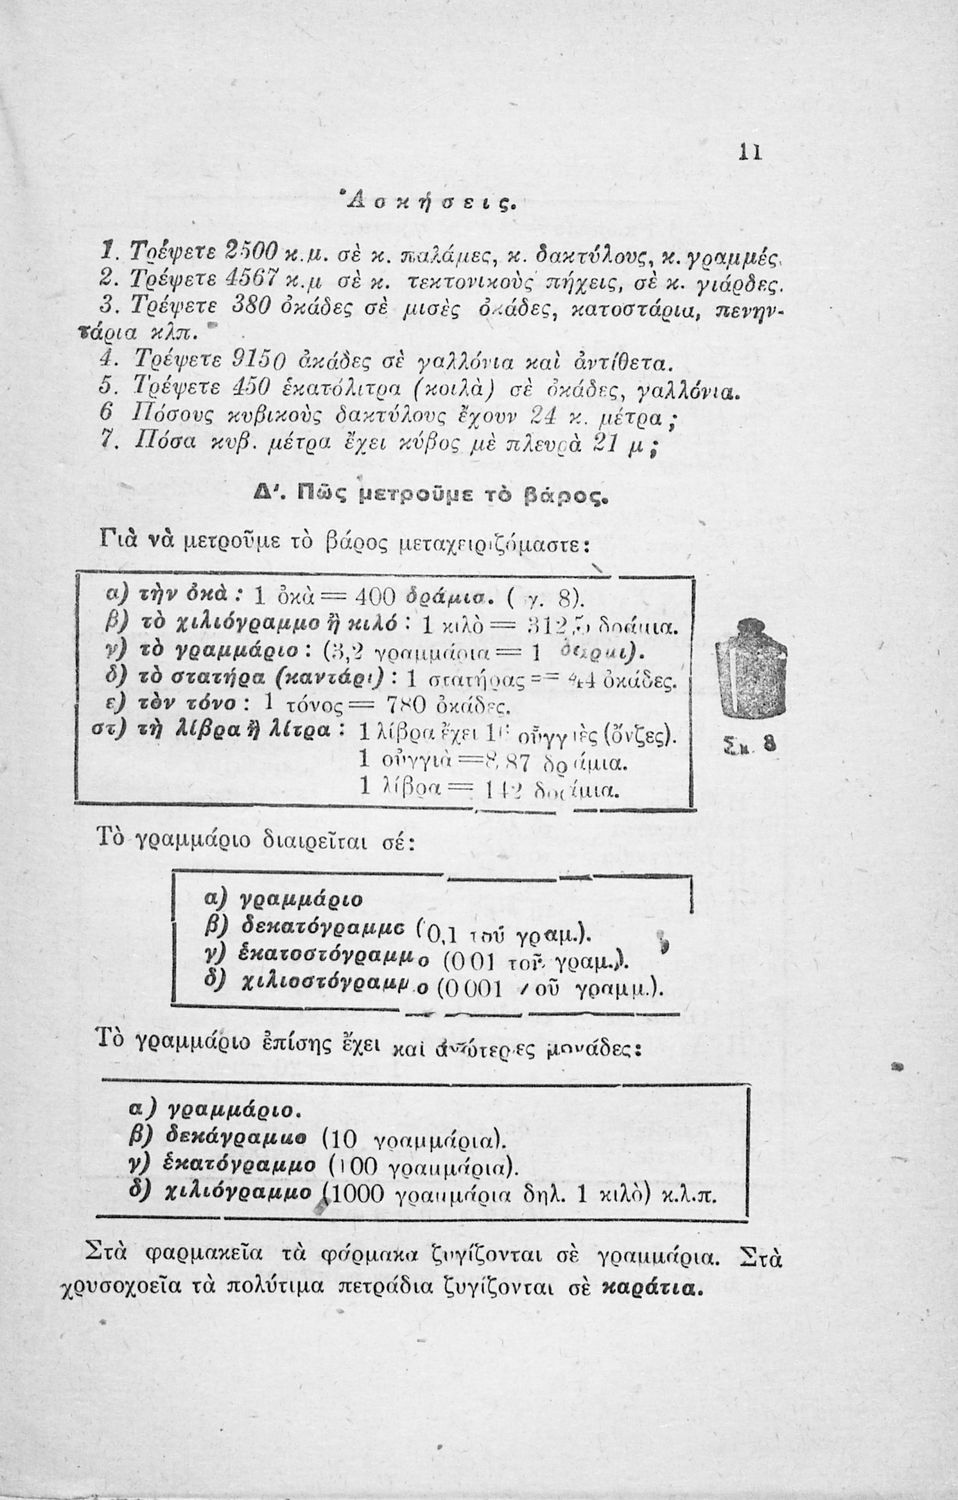 11
Ἀσκήσεις.
1. Τρέψετε 2500 κ.μ. σὲ κ. παλάμες, κ. δακτύλους, κ. γραμμές.
2. Τρέψετε 4567 κ.μ σὲ κ. τεκτονικοὺς πήχεις, σὲ κ. γιάρδες.
3. Τρέψετε 380 ὀκάδες σὲ μισὲς ὀκάδες, κατοστάρια, πενην-
τάρια κλπ.
4. Τρέψετε 9150 ὀκάδες σὲ γαλλόνια καὶ ἀντίθετα.
5. Τρέψετε 450 ἑκατόλιτρα (κοιλὰ) σὲ ὀκάδες, γαλλόνια.
6 Πόσους κυβικοὺς δακτύλους ἔχουν 24 κ. μέτρα;
7. Πόσα κυβ. μέτρα ἔχει κύβος μὲ πλευρὰ 21 μ;
Δ'. Πῶς μετροῦμε τὸ βάρος.
Γιὰ νὰ μετροῦμε τὸ βάρος μεταχειριζόμαστε:
α) τὴν ὀκὰ: 1 ὀκὰ = 400 δράμια. ( 8).
β) τὸ χιλιόγραμμο ἢ κιλό: 1 κιλὸ = 312,5 δράμια.
γ) τὸ γραμμάριο: (3,2 γραμμάρια = 1 δράμι).
δ) τὸ στατήρα (καντάρι): 1 στατήρας = 44 ὀκάδες.
ε) τὸν τόνο: 1 τόνος = 780 ὀκάδες.
στ) τὴ λίβρα ἢ λίτρα: 1 λίβρα ἔχει 16 οὐγγιὲς (ὄνζες).
1 οὐγγιὰ = 8,87 δράμια.
1 λίβρα = 142 δράμια.
Σχ. 8
Τὸ γραμμάριο διαιρεῖται σέ:
α) γραμμάριο
β) δεκατόγραμμο (0,1 τοῦ γραμ.).
γ) ἑκατοστόγραμμο (0 01 τοῦ γραμ.).
δ) χιλιοστόγραμμο (0 001 τοῦ γραμμ.).
Τὸ γραμμάριο ἐπίσης ἔχει καὶ ἀνώτερες μονάδες:
α) γραμμάριο.
β) δεκάγραμμο (10 γραμμάρια).
γ) ἑκατόγραμμο (100 γραμμάρια).
δ) χιλιόγραμμο (1000 γραμμάρια δηλ. 1 κιλὸ) κ.λ.π.
Στὰ φαρμακεῖα τὰ φάρμακα ζυγίζονται σὲ γραμμάρια. Στὰ
χρυσοχοεῖα τὰ πολύτιμα πετράδια ζυγίζονται σὲ καράτια.